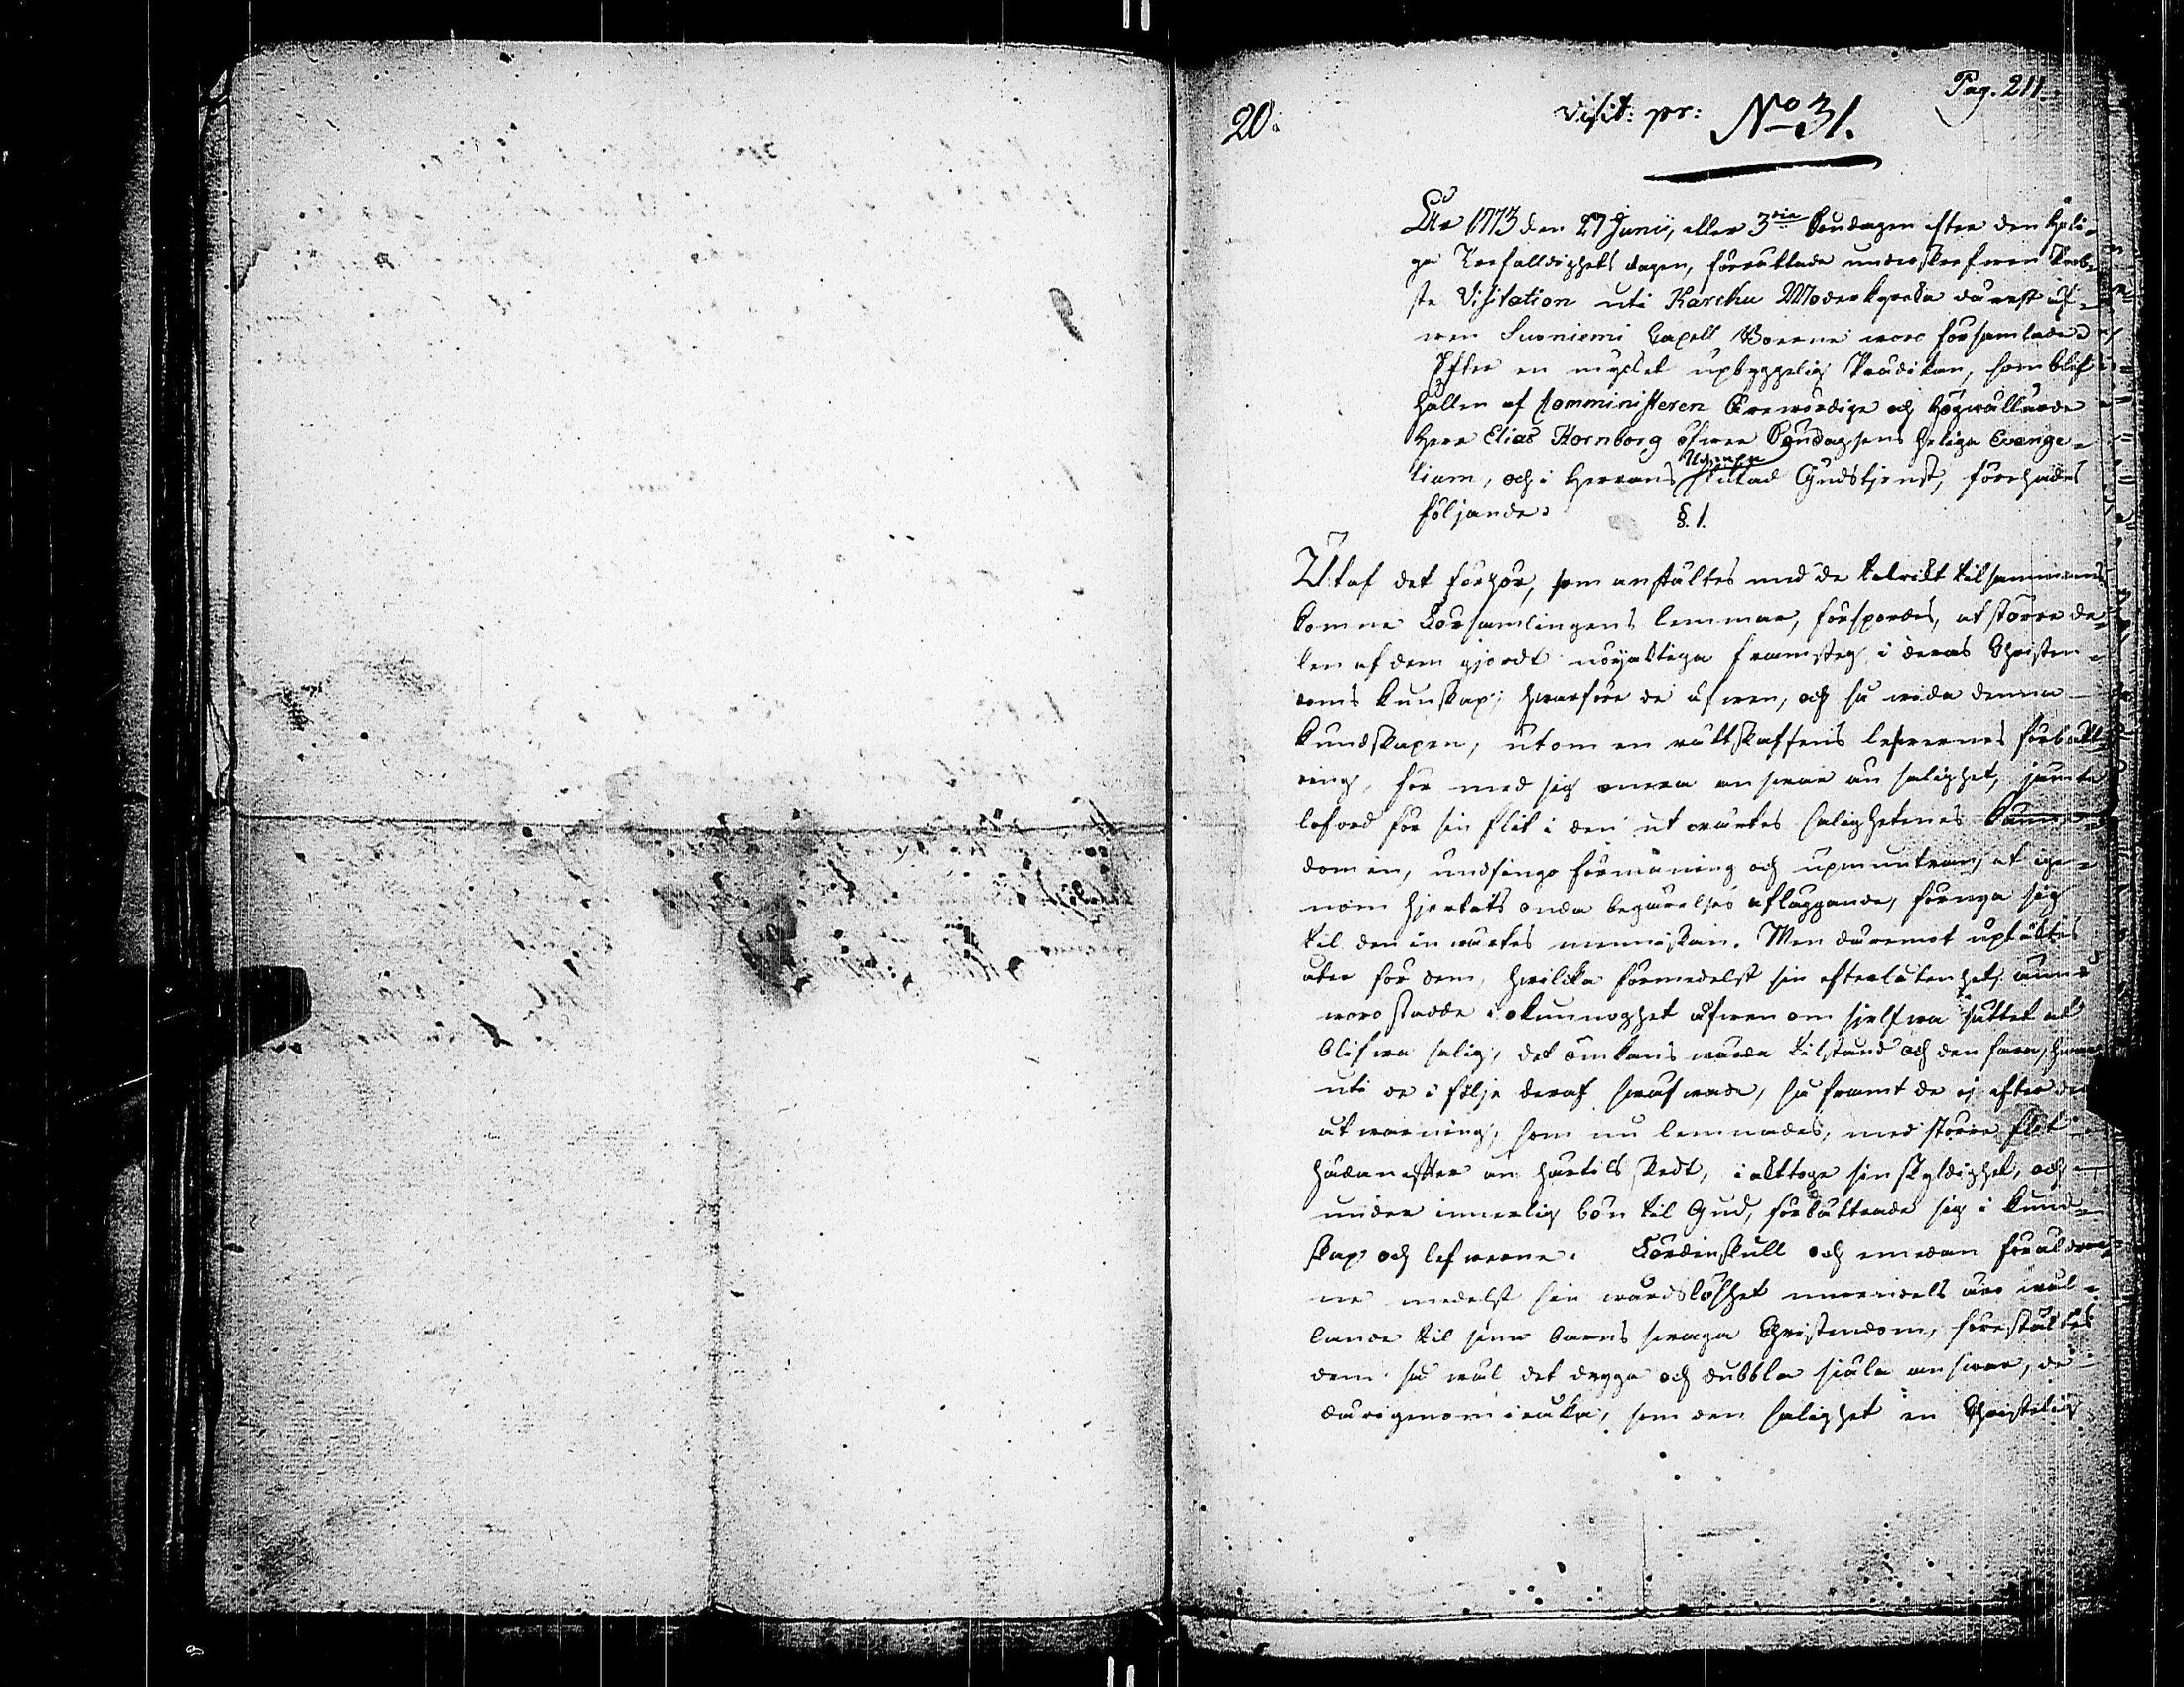 Pag. 211.
20.
visit: pr: No 31.
År 1773 den 27 Junii, eller 3die Söndagen efter den Heli-
ga Trefalldighets dagen, förrättade underskrefwen Prob-
ste Visitation uti Karcku Moderkyrcka därest äf-
wen Suoniemi Capell Boerne woro församlade.
Efter en mycket upbyggelig Prädikan, som blef
hållen af Comministeren Ärewördige och Högwällärde
Herr Elias Kornborg öfwer Söndagsens heliga Evange-
lium, och i Herrans Nampn slutad Gudstjenst, förehades
följande:
§. 1.
Utaf det förhör, som anstältes med de talrikt tilsammans
komne Församlingens lemmar, försporдes, at större de-
len af dem gjordt nöjaktiga framsteg i deras Christen-
doms kunskap; hwarföre de äfwen, och så wida denna
kundskapen, utom en rättskaffens lefwernes förbätt-
ring, för med sig mera answar än salighet, jämte
loford för sin flit i den utwärtes salighetenes känne-
domen, undfingo förmaning och upmuntran, at ige-
nom hjertats onda begärelses afläggande, förnya sig
til den inwärtes menniskan. Men däremot uptäktes
åter för dem, hwilcka förmedelst sin efterlåtenhet, ännu
woro stadde i okunnoghet äfwen om sjelfwa sättet at
blifwa salig, det ömkans wärda tilstånd och den fara, hwar
uti de i följe deraf swäfwade, så framt de ej efter den
åtwarning, som nu lemnades, med större flit
hädanefter än härtils skedt, i akttoge sin skyldighet, och
under innerlig bön til Gud, förbättrade sig i kund-
skap och lefwerne. Fördenskull och emedan föräldrar-
ne medelst sin wårdslöshet merendels äro wål-
lande til sina barns swaga Christendom, förestältes
dem så wäl det dryga och dubbla siäla answar, de
därigenom iråka, som den salighet en Christelig